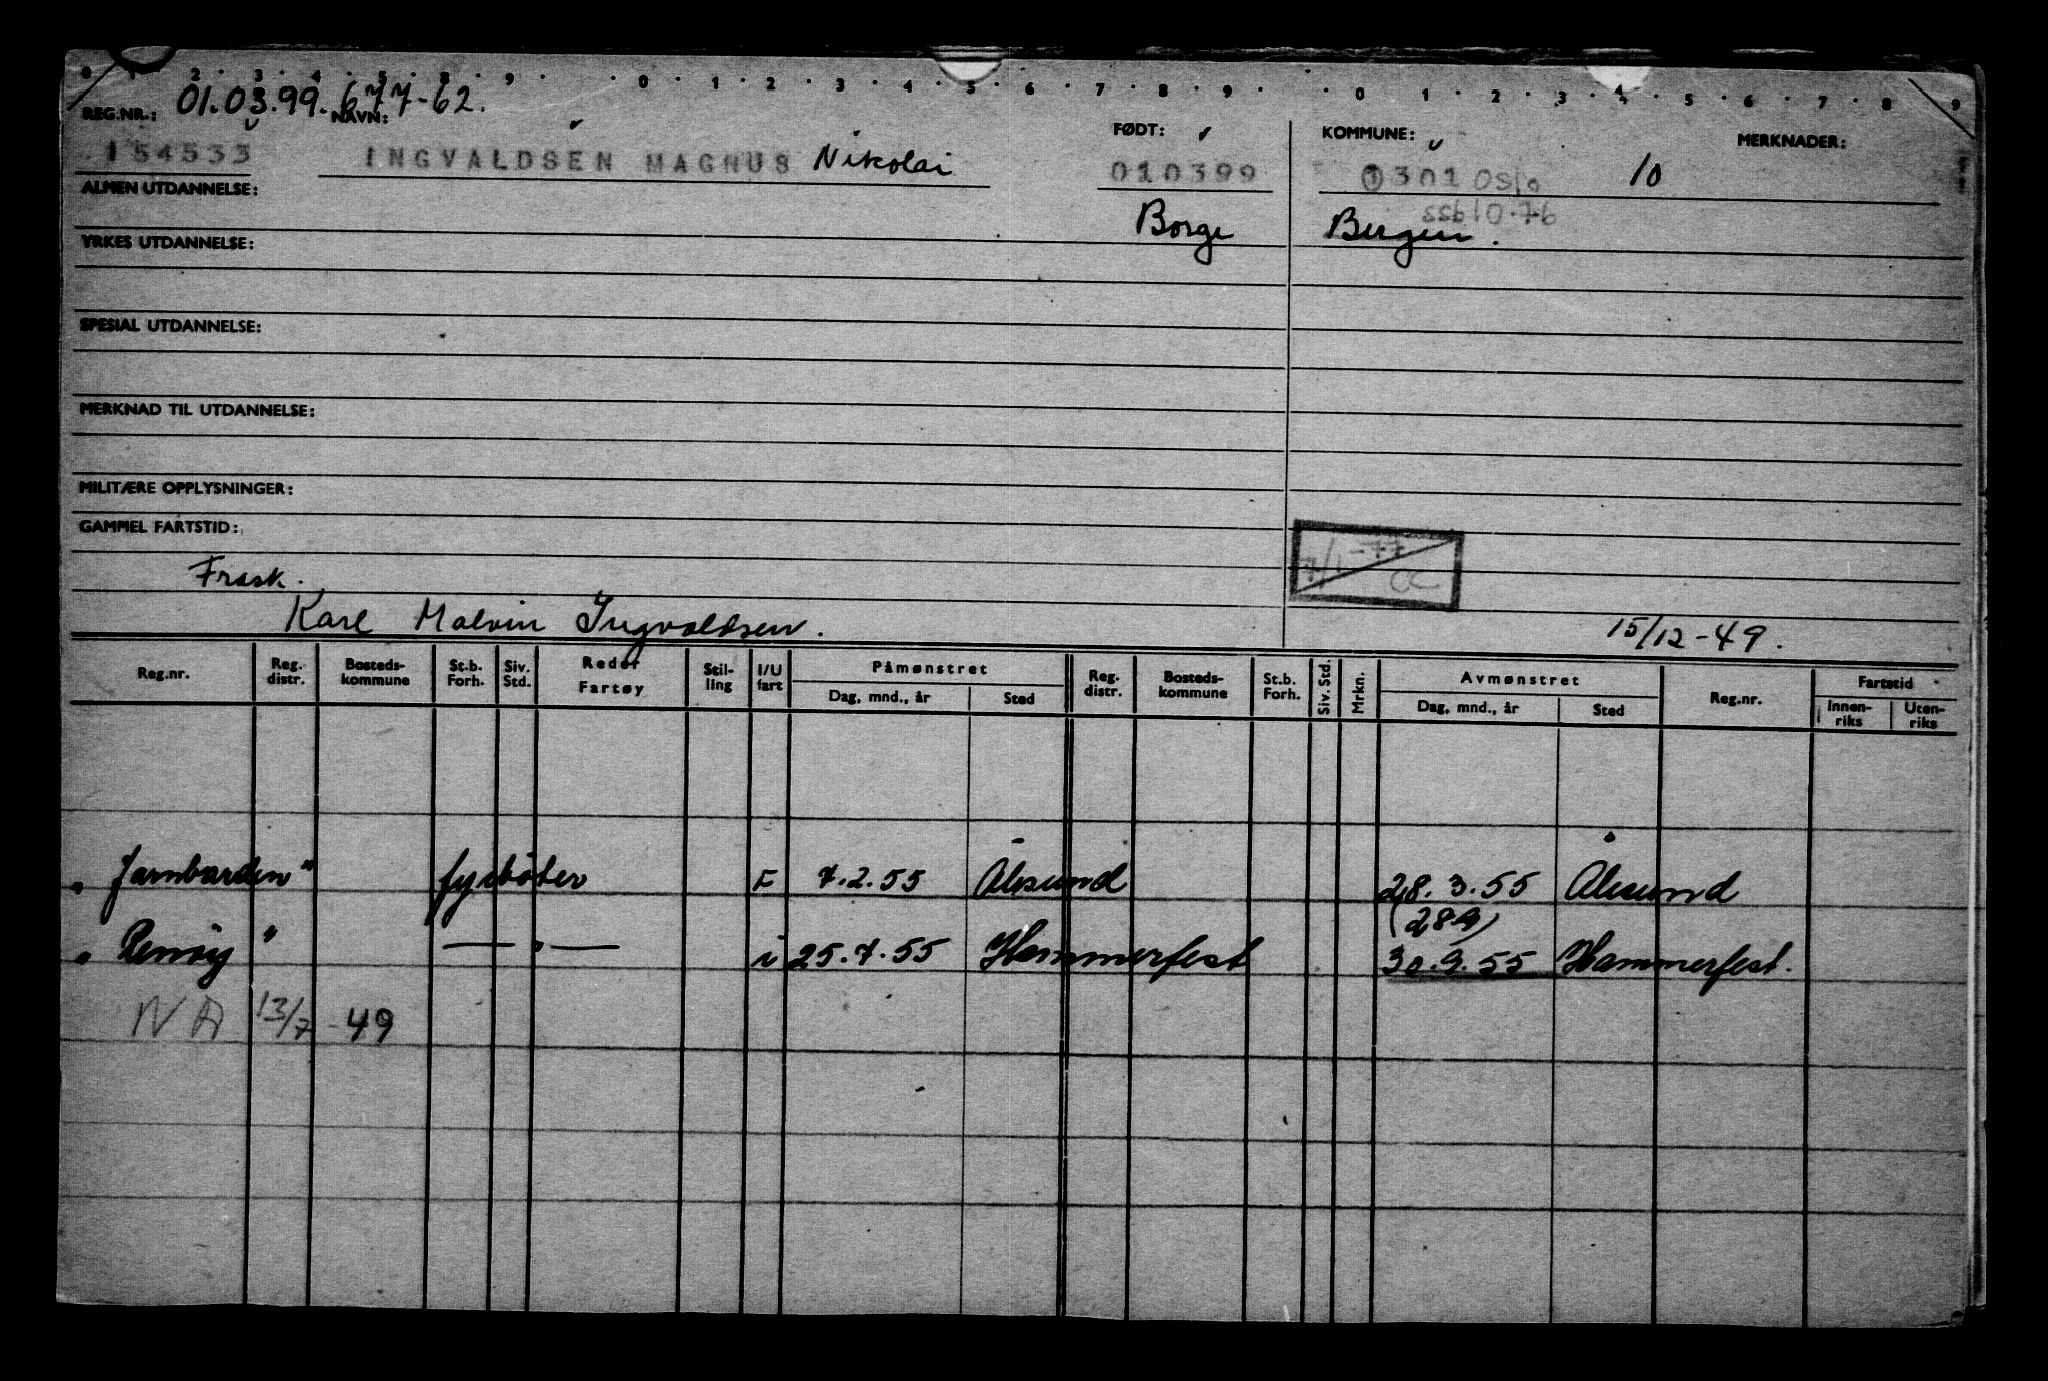 0 1 . 2 . 3 . 4 . 5 . 8 . 9 . . 0 . 1 . 2 . 3 . 4 . 5 . 6 . 7 . 8 . 9 . . 0 . 1 . 2 . 3 . 4 . 5 . 6 . 7 . 8 . 9
REG.NR.: 01.03.99. 677-62. NAVN: FØDT: KOMMUNE: MERKNADER:
154533 INGVALDSEN MAGNUS Nikolai 010399 0301 Oslo 10
ALMEN UTDANNELSE: ssb10.76
Borge Bergen.
YRKES UTDANNELSE:
SPESIAL UTDANNELSE:
MERKNAD TIL UTDANNELSE:
MILITÆRE OPPLYSNINGER:
GAMMEL FARTSTID:
7/1-77
CC
Frask.
Karl Malvin Ingvaldsen. 15/12-49.
Reg.nr. Reg. distr. Bosteds-kommune St.b. Forh. Siv. Std. Reder Fartøy Stil-ling I/U fart Påmønstret Dag, mnd., år Sted Reg. distr. Bosteds-kommune St.b. Forh. Siv. Std. Mrkn. Avmønstret Dag, mnd., år Sted Reg.nr. Fartstid Innen-riks Uten-riks
"Jarnbarden" fyrbøter F 7.2.55 Ålesund 28.3.55 Ålesund
(289)
" " — " — i 25.7.55 Hammerfest 30.9.55 Hammerfest.
NA 13/7-49